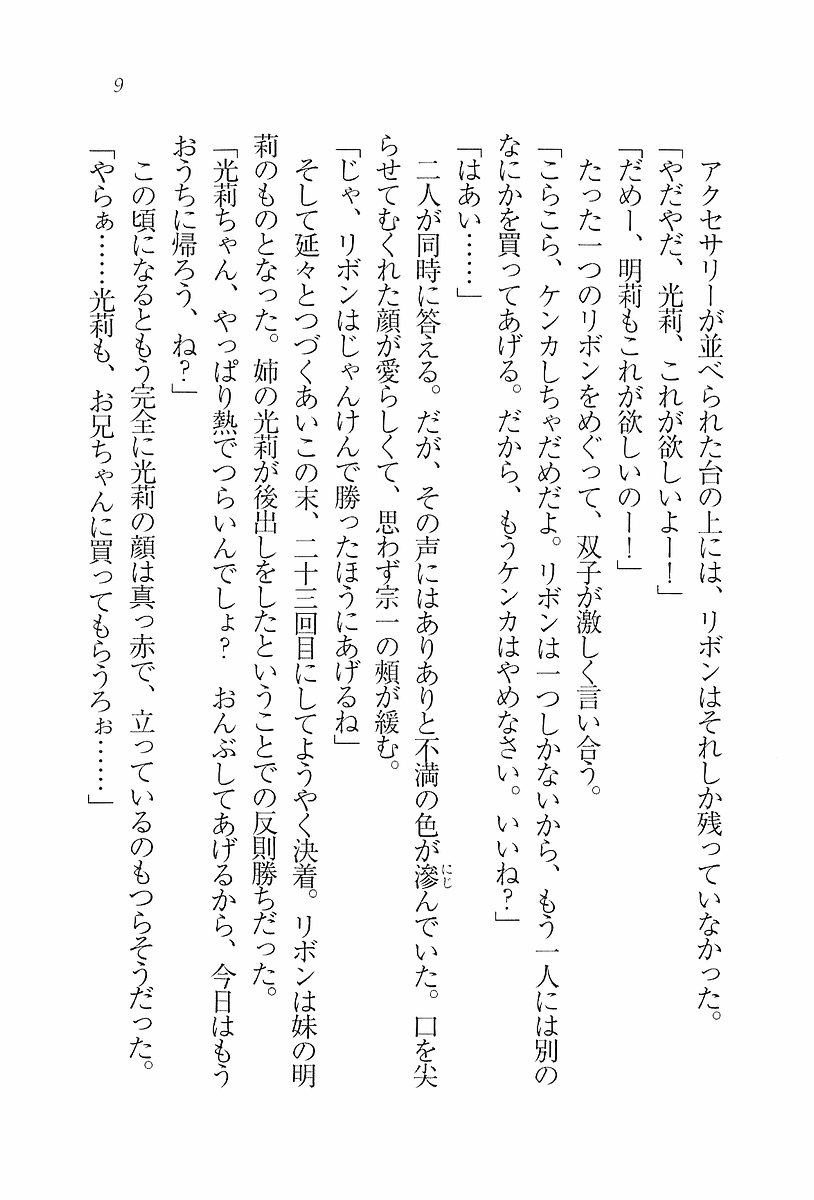 9
アクセサリーが並べられた台の上には、リボンはそれしか残っていなかった。
「やだやだ、光莉、これが欲しいよー！」
「だめー、明莉もこれが欲しいのー！」
たった一つのリボンをめぐって、双子が激しく言い合う。
「こらこら、ケンカしちゃだめだよ。リボンは一つしかないから、もう一人には別の
なにかを買ってあげる。だから、もうケンカはやめなさい。いいね？」
「はあい……」
二人が同時に答える。だが、その声にはありありと不満の色が滲んでいた。口を尖
らせてむくれた顔が愛らしくて、思わず宗一の頰が緩む。
「じゃ、リボンはじゃんけんで勝ったほうにあげるね」
そして延々とつづくあいこの末、二十三回目にしてようやく決着。リボンは妹の明
莉のものとなった。姉の光莉が後出しをしたということでの反則勝ちだった。
「光莉ちゃん、やっぱり熱でつらいんでしょ？　おんぶしてあげるから、今日はもう
おうちに帰ろう、ね？」
この頃になるともう完全に光莉の顔は真っ赤で、立っているのもつらそうだった。
「やらぁ……光莉も、お兄ちゃんに買ってもらうろぉ……」
にじ